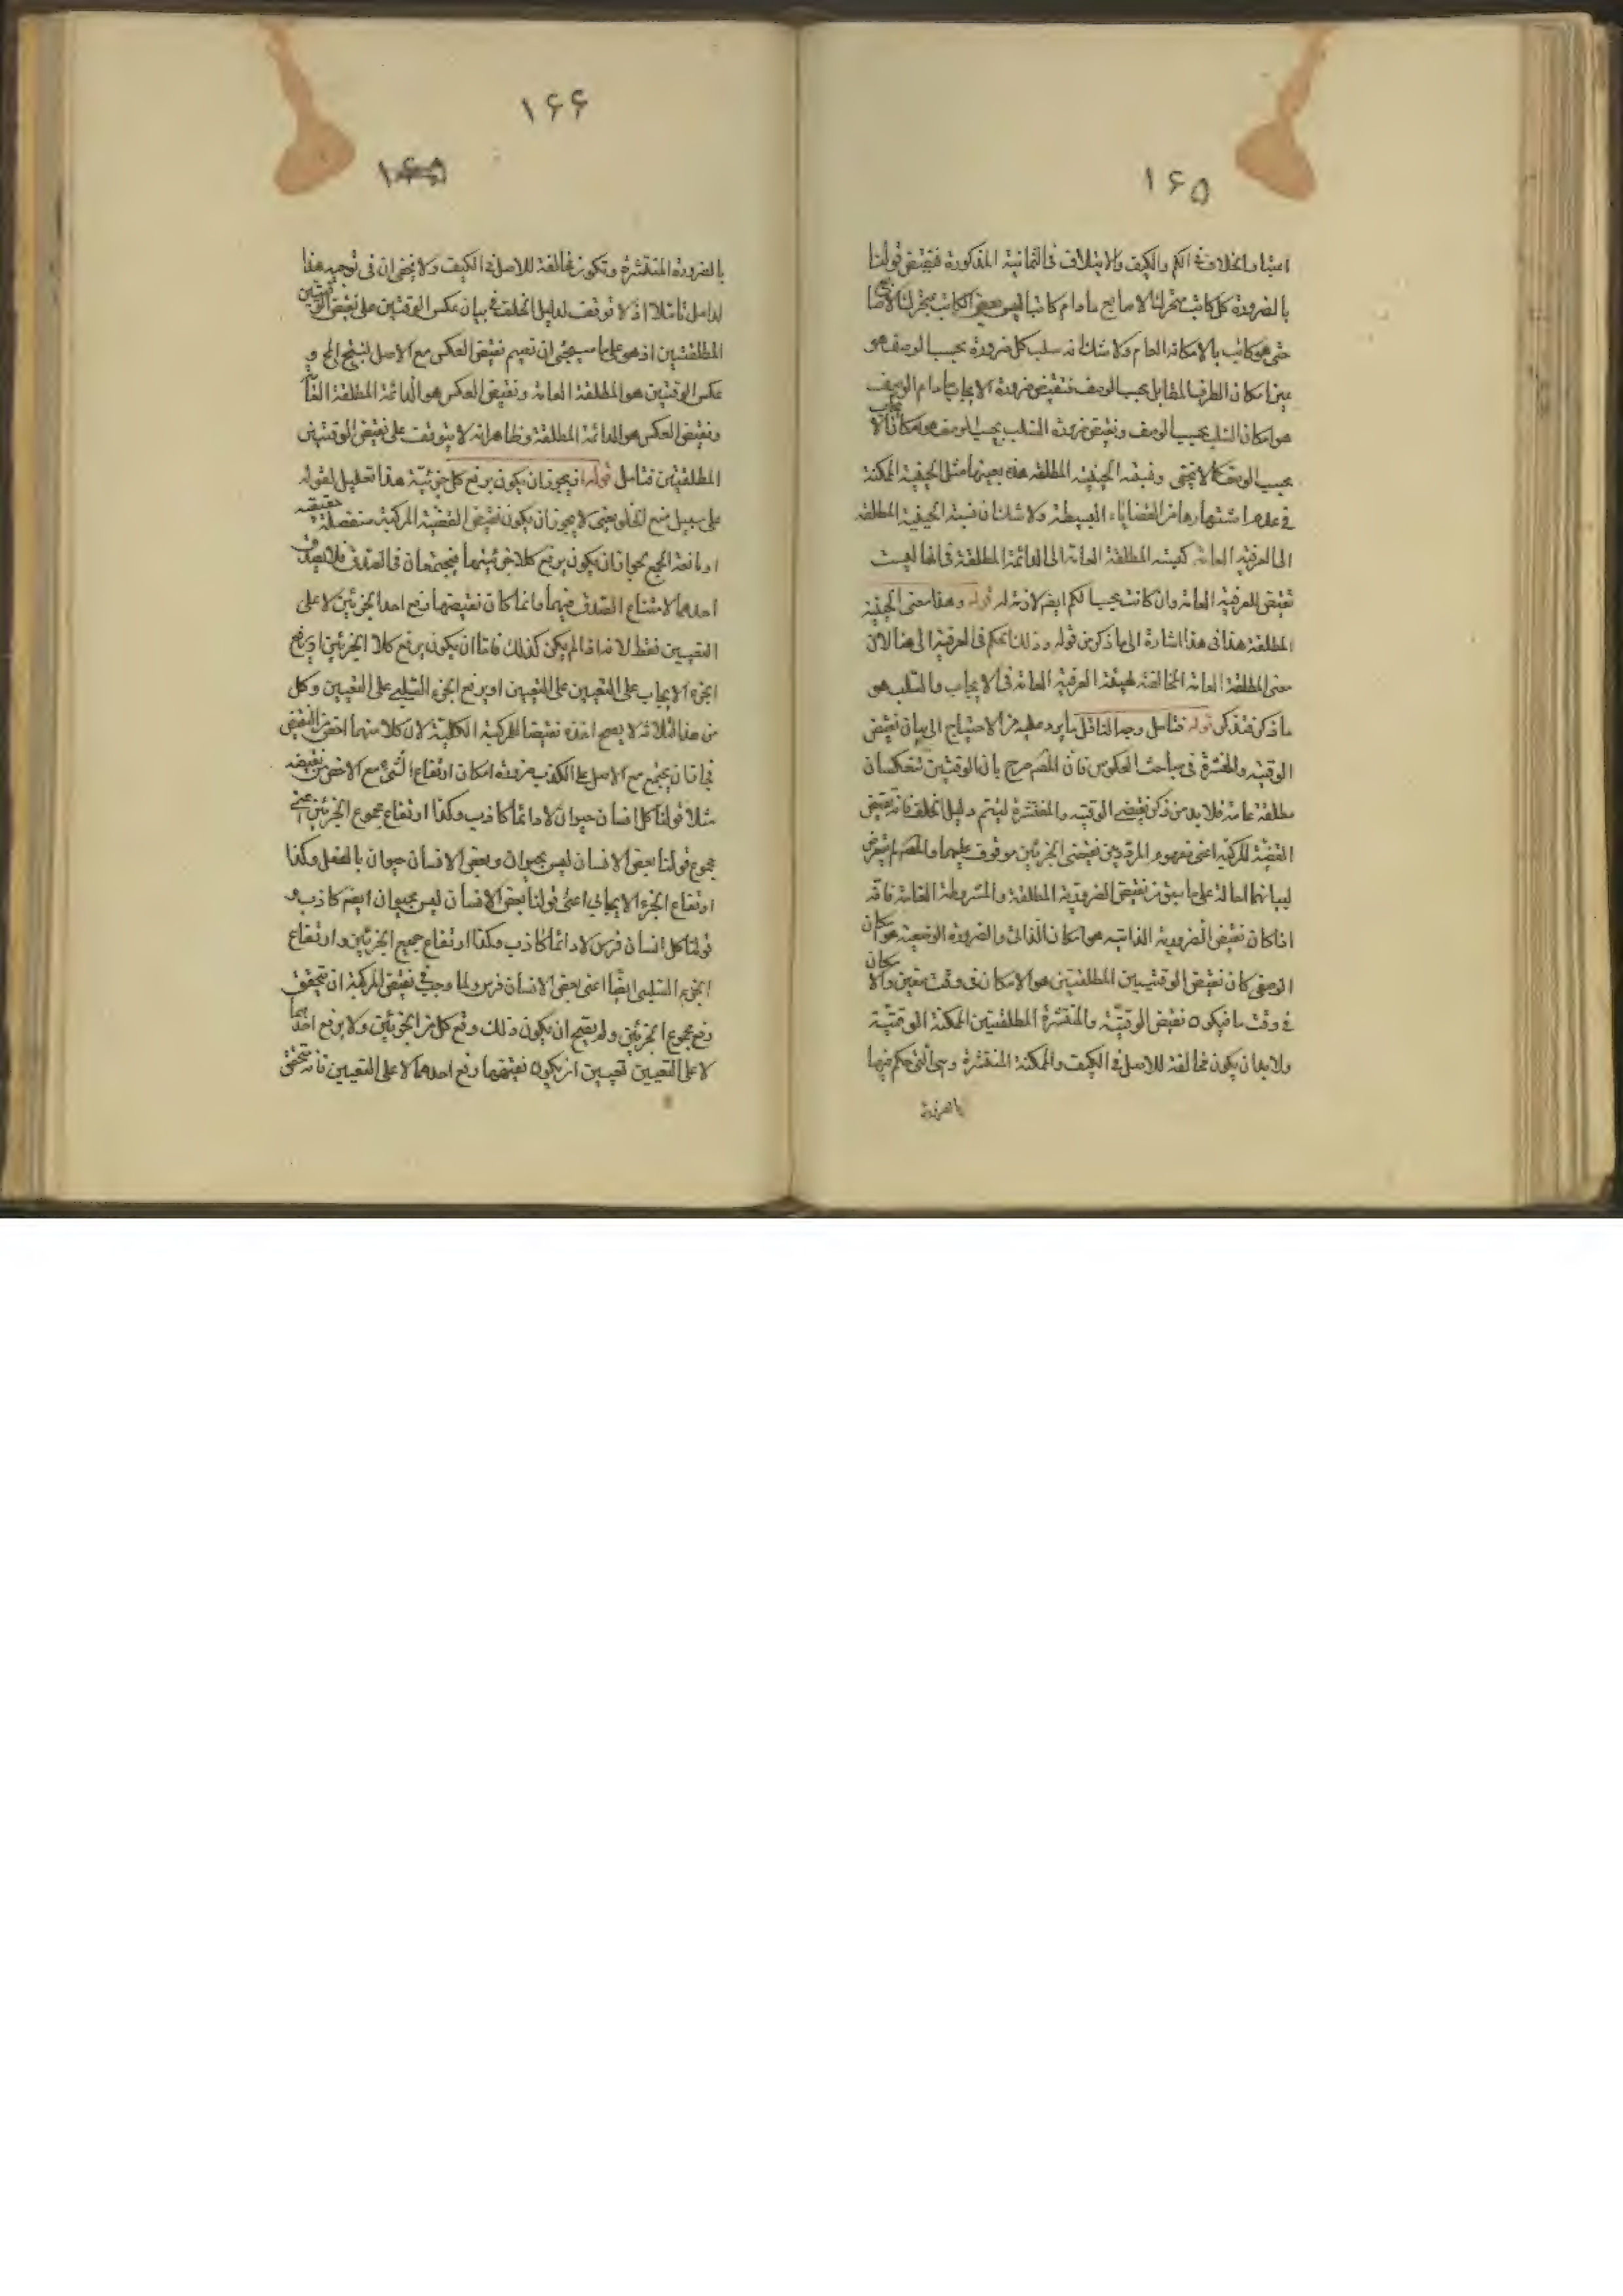 ١۶۵
ايضا واختلاف فى الكم والكيف والايتلاف فى الثمانية المذكورة فنقيض قولنا
بالضرورة كل كاتب متحرك الاصابع مادام كاتبا ليس بعض الكاتب بمتحرك الاصابع
حتى هو كاتب بالامكان العام ولا شك انه سلب كل ضرورة بحسب الوصف هو
عين امكان الطرف المقابل بحسب الوصف فنقيض ضرورة الايجاب مادام الوصف
هو امكان السلب بحسب الوصف ونقيض ضرورة السلب بحسب الوصف هو امكان الايجاب
بحسب الوصف كما لا يخفى ونسبة الحينية المطلقة هذه بعينها مثل الحينية الممكنة
فى عدم اشتهارها من القضاياء البسيطة ولا شك ان نسبة الحينية المطلقة
الى العرفية العامة كنسبة المطلقة العامة الى الدائمة المطلقة فى انها ليست
نقيض للعرفية العامة وان كانت بحسب الكم ايضم لازمة له قوله وهذا معنى الحينية
المطلقة هذا فى هذا اشارة الى ما ذكر من قوله وذلك الحكم فى العرفية الى هنا لان
معنى المطلقة العامة المخالفة لهيئة العرفية العامة فى الايجاب والسلب هو
ما ذكر فتذكر قوله فتامل وجه التامل ما يرد عليه من الاحتياج الى بيان نقيض
الوقتية والمنتشرة فى مباحث العكوس فان المصم صرح بان الوقتيتين تنعكسان
مطلقة عامة فلا بد من ذكر نقيضى الوقتية والمنتشرة ليتم دليل الخلف فانه نقيض
القضية المركبة اعنى مفهوم المردد بين نقيضى الجزئين موقوف عليهما والمصم لم يتعرض
لبيانهما احالة على ما سبق من نقيض الضرورية المطلقة والمشروطة العامة فانه
اذا كان نقيض الضرورية الذاتية هو امكان الذاتى والضرورة الوصفية هو امكان
الوصفى كان نقيض الوقتيين المطلقتين هو الامكان فى وقت معين والامكان
فى وقت ما فيكون نقيض الوقتية والمنتشرة المطلقتين الممكنة الوقتية
ولا بد ان يكون مخالفة للاصل فى الكيف والممكنة المنتشرة وهى التى حكم فيها
بالضرورة
١۶۶
بالضرورة المنتشرة وتكون مخالفة للاصل فى الكيف ولا يخفى ان فى توجيه هذا
لدامل تاملا اذ لا توقف لدليل الخلف فى بيان عكس الوقتيتين على نقيض الوقتيتين
المطلقتين اذ هو على ما سيجئى ان تعيم نقيض العكس مع الاصل لينتج المح و
عكس الوقتيتين هو المطلقة العامة ونقيض العكس هو الدائمة المطلقة
ونقيض العكس هو الدائمة المطلقة وظاهر انه لا يتوقف على نقيض الوقتيتين
المطلقيتين فتامل قوله اذ يجوز ان يكون برفع كل جزئيه هذا تعليل لقوله
على سبيل منع الخلو يعنى لا يجوز ان يكون نقيض القضية المركبة منفصلة حقيقيه
او مانعة الجمع بجواز ان يكون برفع كلا جزئيهما فيجتمعان فى الصدق فلا يصدق
احدهما لامتناع الصدق فيهما وانما كان نقيضهما رفع احد الجزئين لا على
التعيين فقط لانه اذا لم يكن كذلك فاما ان يكون برفع كلا الجزئين او رفع
الجزء الايجاب على التعيين على التعيين او برفع الجزء السلبى على التعيين وكل
من هذا الثلاثة لا يصح اخذه نقيضا للمركبة الكلية لان كلا منهما اخص من النقيض
فجاز ان يجتمع مع الاصل على الكذب ضرورة امكان ارتفاع الشئ مع الاخص من نقيضه
مثلا قولنا كل انسان حيوان لا دائما كاذب وكذا ارتفاع مجموع الجزئين اعنى
مجموع قولنا بعض الانسان ليس بحيوان وبعض الانسان حيوان بالفعل وكذا
ارتفاع الجزء الايجابى اعنى قولنا بعض الانسان ليس بحيوان ايضم كاذب و
قولنا كل انسان فرس لا دائما كاذب وكذا ارتفاع جميع الجزئين وارتفاع
الجزء السلبى ايضا اعنى بعض الانسان فرس ولما وجب فى نقيض المركبة ان يتحقق
رفع مجموع الجزئين ولم يصح ان يكون ذلك رفع كل من الجزئين ولا برفع احدهما
لا على التعيين تعيين ان يكون نقيضهما رفع احدهما لا على التعيين فانه يتحقق